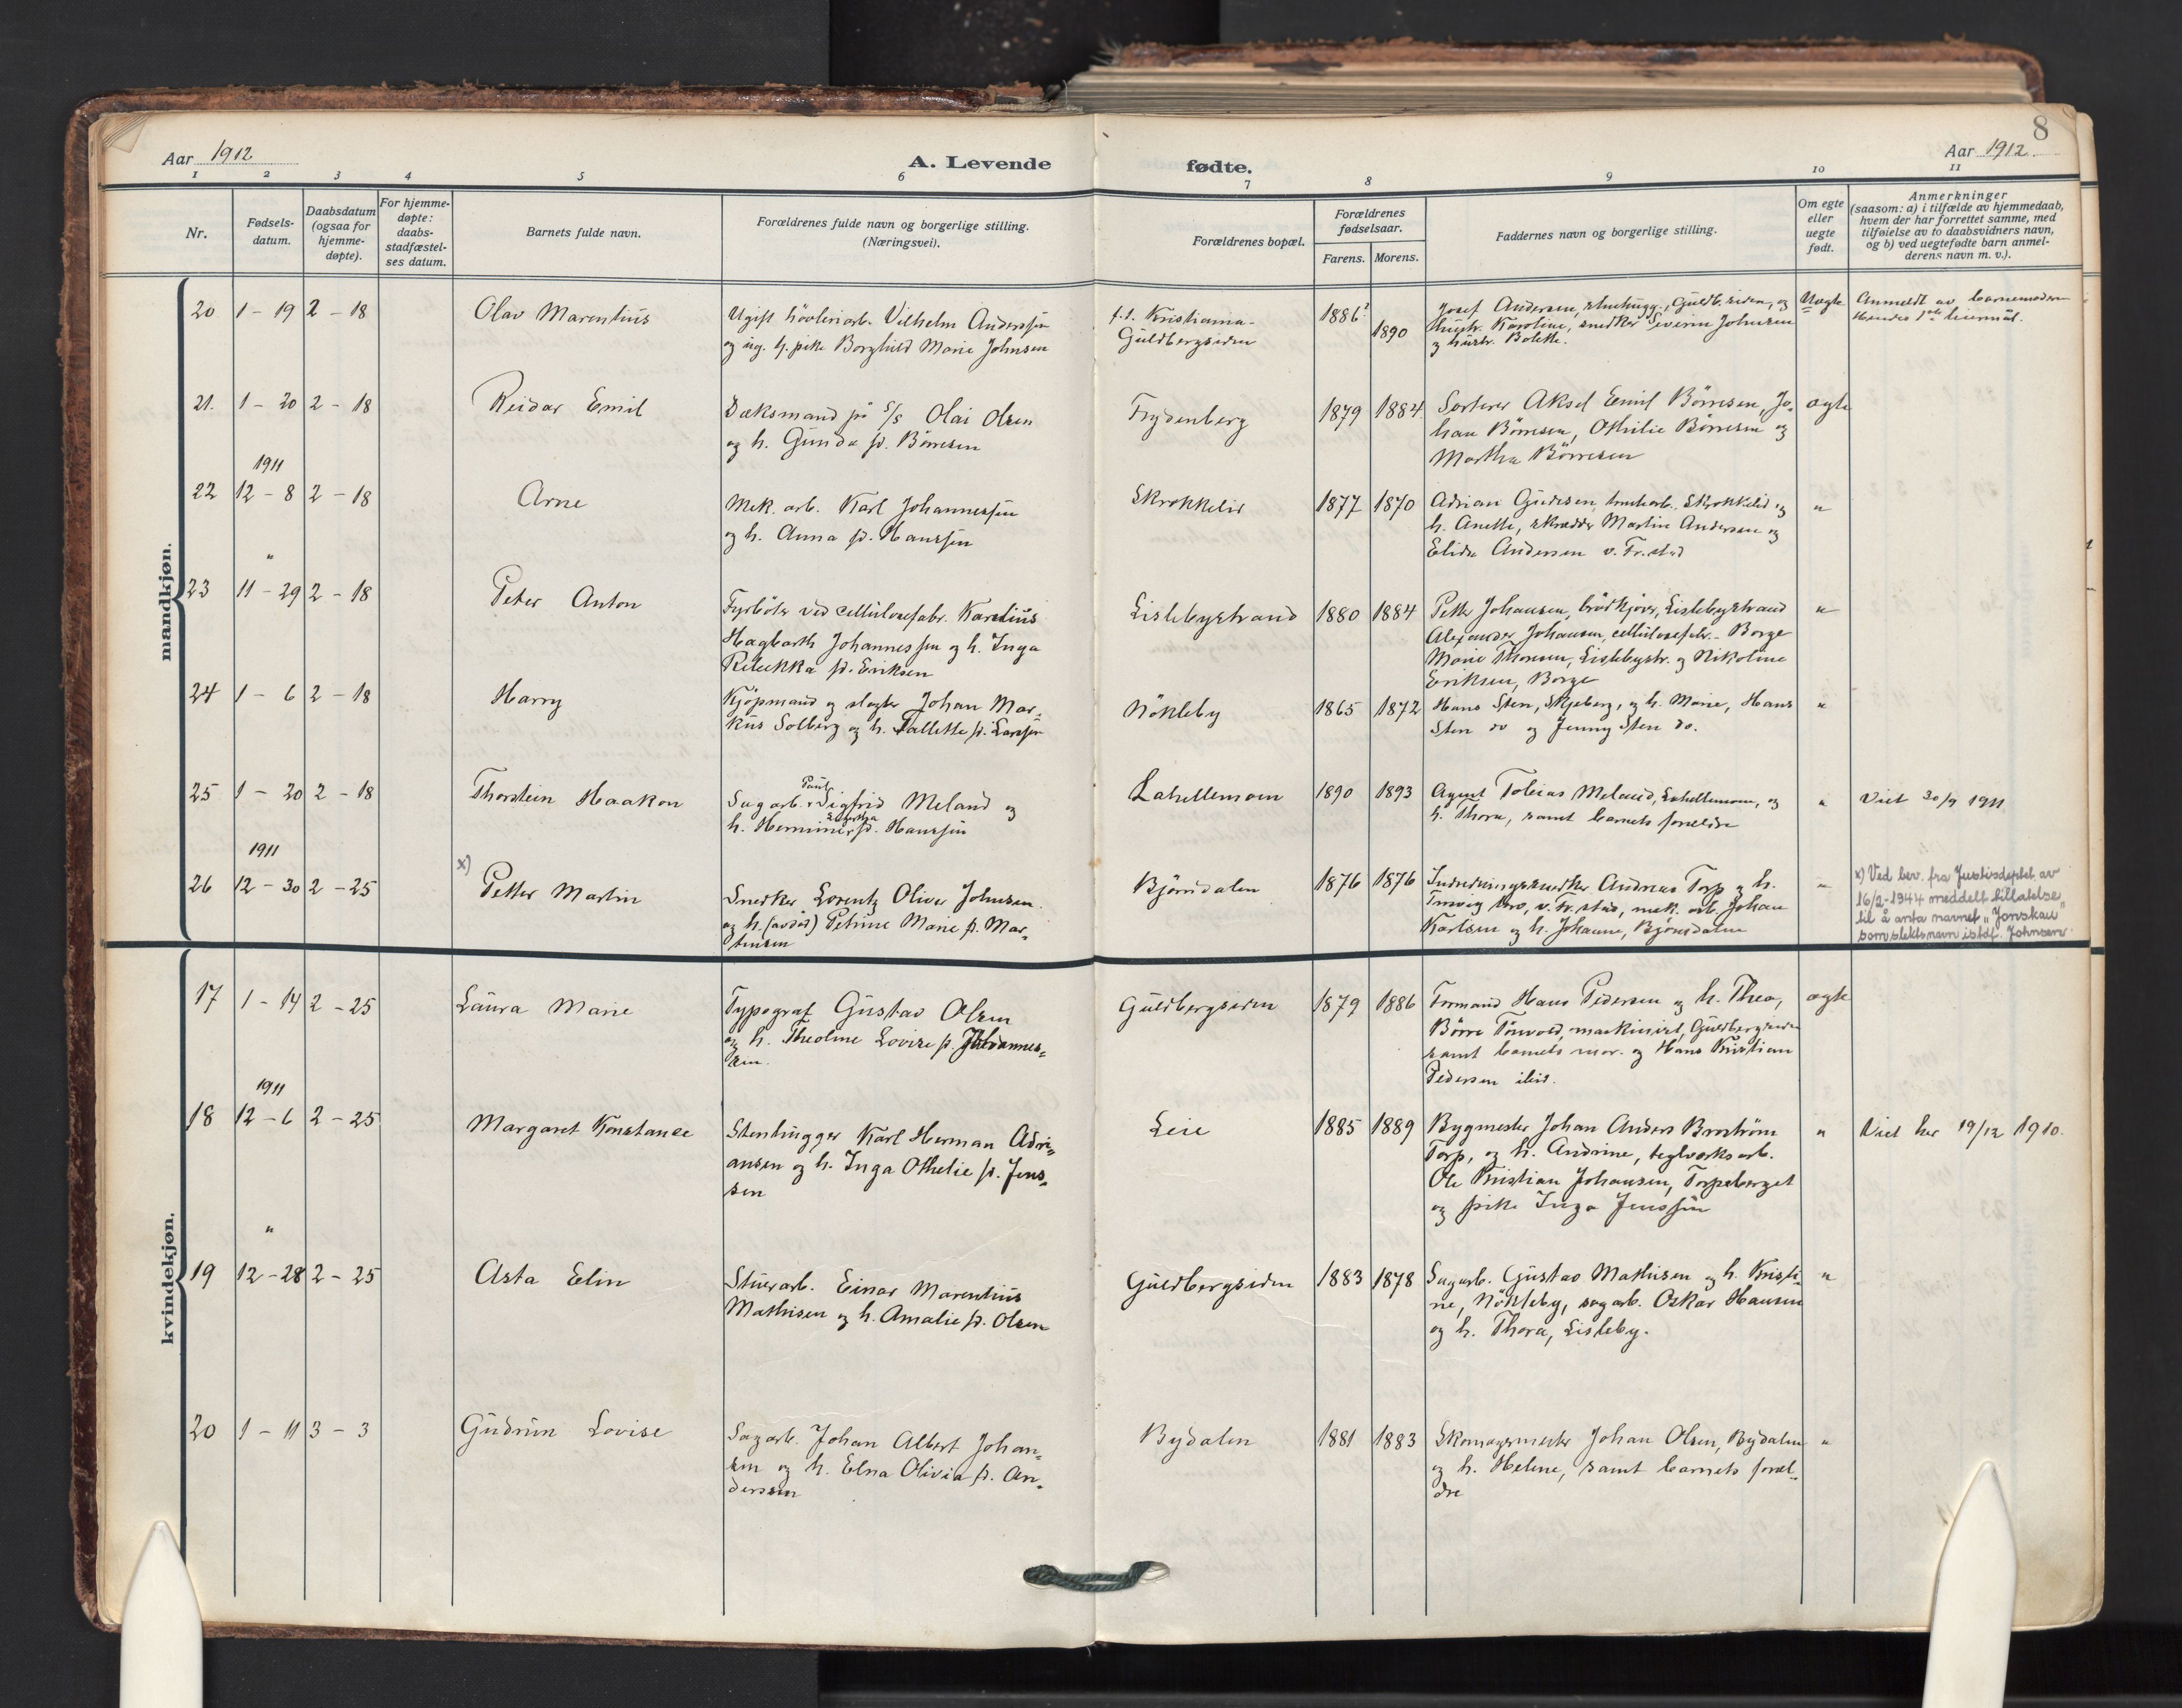 8
Aar 1912
A. Levende
fødte.
Aar 1912.
1 2 3 4 5 6 7 8 9 10 11
Nr.
Fødsels-
datum.
Daabsdatum
(ogsaa for
hjemme-
døpte).
For hjemme-
døpte:
daabs-
stadfæstel-
ses datum.
Barnets fulde navn.
Forældrenes fulde navn og borgerlige stilling.
(Næringsvei).
Forældrenes bopæl.
Forældrenes
fødselsaar.
Farens. Morens.
Faddernes navn og borgerlige stilling.
Om egte
eller
uegte
født.
Anmerkninger
(saasom: a) i tilfælde av hjemmedaab,
hvem der har forrettet samme, med
tilføielse av to daabsvidners navn,
og b) ved uegtefødte barn anmel-
derens navn m. v.).
mandkjøn.
20 1 - 19 2 - 18
Olav Marentius
Ugift hövleriarb. Vilhelm Anderssen
og ug. tj. pike Borghild Marie Johnsen
f. t. Kristiania -
Guldbergsiden
1886?
1890
Josef Andersen, stenhugg., Guldb. siden, og
hustr. Karoline, snedker Severin Johnsen
og hustr. Bolette.
Uegte
Anmeldt av barnemoderen
Hendes 1ste leiermål.
21. 1 - 20 2 - 18
Reidar Emil
Dæksmand på S/S Olai Olsen
og h. Gunda f. Börresen
Frydenberg
1879 1884
Sorterer Aksel Emil Börresen, Jo-
han Börresen, Othilie Börresen og
Martha Börresen
ægte
1911
22 12 - 8 2 - 18
Arne
Mek. arb. Karl Johannessen
og h. Anna f. Hanssen
Skrokkelid
1877 1870
Adrian Gudesen, brukarb., Skrokkelid og
h. Anette, skrædder Martin Andersen og
Elida Andersen v. Fr.stad
"
"
23 11 - 29 2 - 18
Peter Anton
Fyrböter ved cellulosefabr. Karelius
Hagbarth Johannessen og h. Inga
Rebekka f. Eriksen
Lislebystrand
1880 1884
Petter Johansen, brödkjörer, Lislebystrand
Alexander Johansen, cellulosefabr. - Borge
Marie Thoresen, Lislebystr. og Nikoline
Eriksen, Borge
"
24 1 - 6 2 - 18
Harry
Kjöpmand og slagter Johan Mar-
kus Solberg og h. Tallette f. Larssen
Nökleby
1865 1872
Hans Sten, Skjeberg, og h. Marie, Hans
Sten do og Jenny Sten do.
"
25 1 - 20 2 - 18
Thorstein Haakon
Paul
Sagarb. Sigfrid Meland og
h. Hermine f. Hanssen
Lahellemoen
1890 1893
Agent Tobias Meland, Lahellemoen, og
h. Thora, samt barnets forældre
"
Viet 30/9 1911
1911
26 12 - 30 2 - 25
x)
Petter Martin
Snedker Lorentz Oliver Johnsen
og h. (avdöd) Petrine Marie f. Mar-
tinsen
Björndalen
1876 1876
Indredningssnedker Andreas Torp og h.
v. Fr. stad, mek. arb. Johan
Karlsen og h. Johanne, Björndalen
"
x) Ved bev. fra Justisdeptet av
16/2-1944 meddelt tillatelse
til å anta navnet "Jonskau"
som slektsnavn istdf. Johnsen.
kvindekjøn.
17 1 - 14 2 - 25
Laura Marie
Typograf Gustav Olsen
og h. Theoline Lovise f. Johannes-
sen.
Guldbergsiden
1879 1886
Formand Hans Pedersen og h. Thea,
Börre Tönvold, maskinist, Guldbergsiden
samt barnets mor. og Hans Kristian
Pedersen ibid.
ægte
1911
18 12 - 6 2 - 25
Margaret Konstanse
Stenhugger Karl Herman Adri-
ansen og h. Inga Othelie f. Jens-
sen
Leie
1885 1889
Bygmester Johan Anders Broström
Torp, og h. Andrine, teglverksarb.
Ole Kristian Johansen, Torpeberget
og pike Inga Jenssen
"
Viet her 19/12 1910.
"
19 12 - 28 2 - 25
Asta Elin
Stuerarb. Einar Marentius
Mathisen og h. Amalie f. Olsen
Guldbergsiden
1883 1878
Sagarb. Gustav Mathisen og h. Kristi-
ne, Nökleby, sagarb. Oskar Hansen
og h. Thora, Lisleby.
"
20 1 - 11 3 - 3
Gudrun Lovise
Sagarb. Johan Albert Johan-
sen og h. Elna Olivia f. An-
derssen
Bydalen
1881 1883
Skomagermester Johan Olsen, Bydalen
og h. Helene, samt barnets foræl-
dre
"